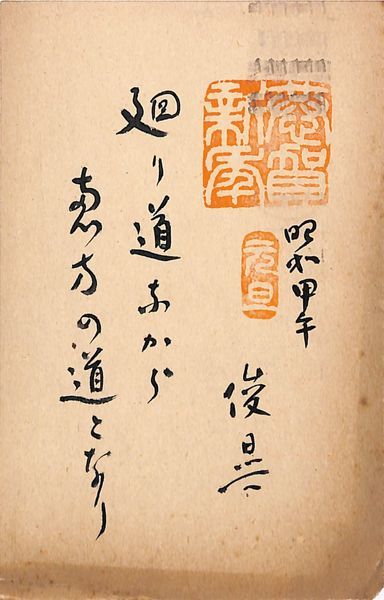 慶賀
新年
昭和甲午
元旦
俊
廻り道なから
恵方の道となり